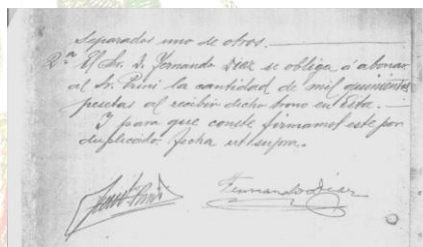 Separados uno de otros.
2ª El Sr. D. Fernando Diaz se obliga á abonar
al Sr. Prini la cantidad de mil quinientas
pesetas al recibir dicho trono en Esta.
Y para que conste firmamos este por
duplicado fecha ut supra.
Fernando Diaz